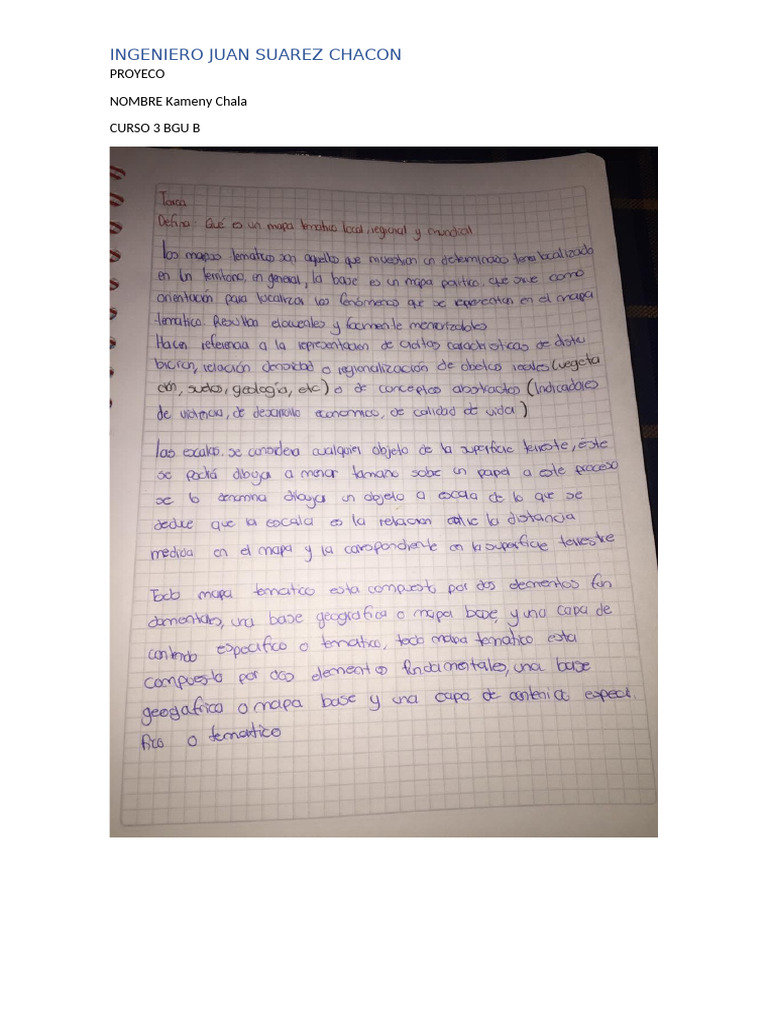 INGENIERO JUAN SUAREZ CHACON
PROYECO
NOMBRE Kameny Chala
CURSO 3 BGU B
Tarea
Defina: Qué es un mapa tematico local, regional y mundial
Los mapas tematico son aquello que muestran un determinados tema localizado
en un territorio, en general, la base es un mapa politico, que sirve como
orientación para localizar los fenómenos que se representan en el mapa
tematico. Resultan elocuentes y facilmente memorizables
Hacen referencia a la representacion de ciertas caracteristicas de distri
bución, relación densidad o regionalización de objetos reales (vegeta
ción, suelos, geología, etc) o de conceptos abstractos (Indicadores
de violencia, de desarrollo economico, de calidad de vida)
Las escalas. se considera cualquier objeto de la superficie terrestre, éste
se podrá dibuja a menor tamano sobe un papel a este proceso
se lo denomina dibuja un objeto a escala de lo que se
deduce que la escala es la relacion entre la distancia
medida en el mapa y la correspondiente en la superficie terrestre
Todo mapa tematico esta compuest por dos elementos fun
damentales, una base geografica o mapa base, y una capa de
contenido especifico o tematico, todo mapa tematico esta
compuesto por dos elementos fundamentales, una base
geografica o mapa base y una capa de contenid especi
fico o tematico